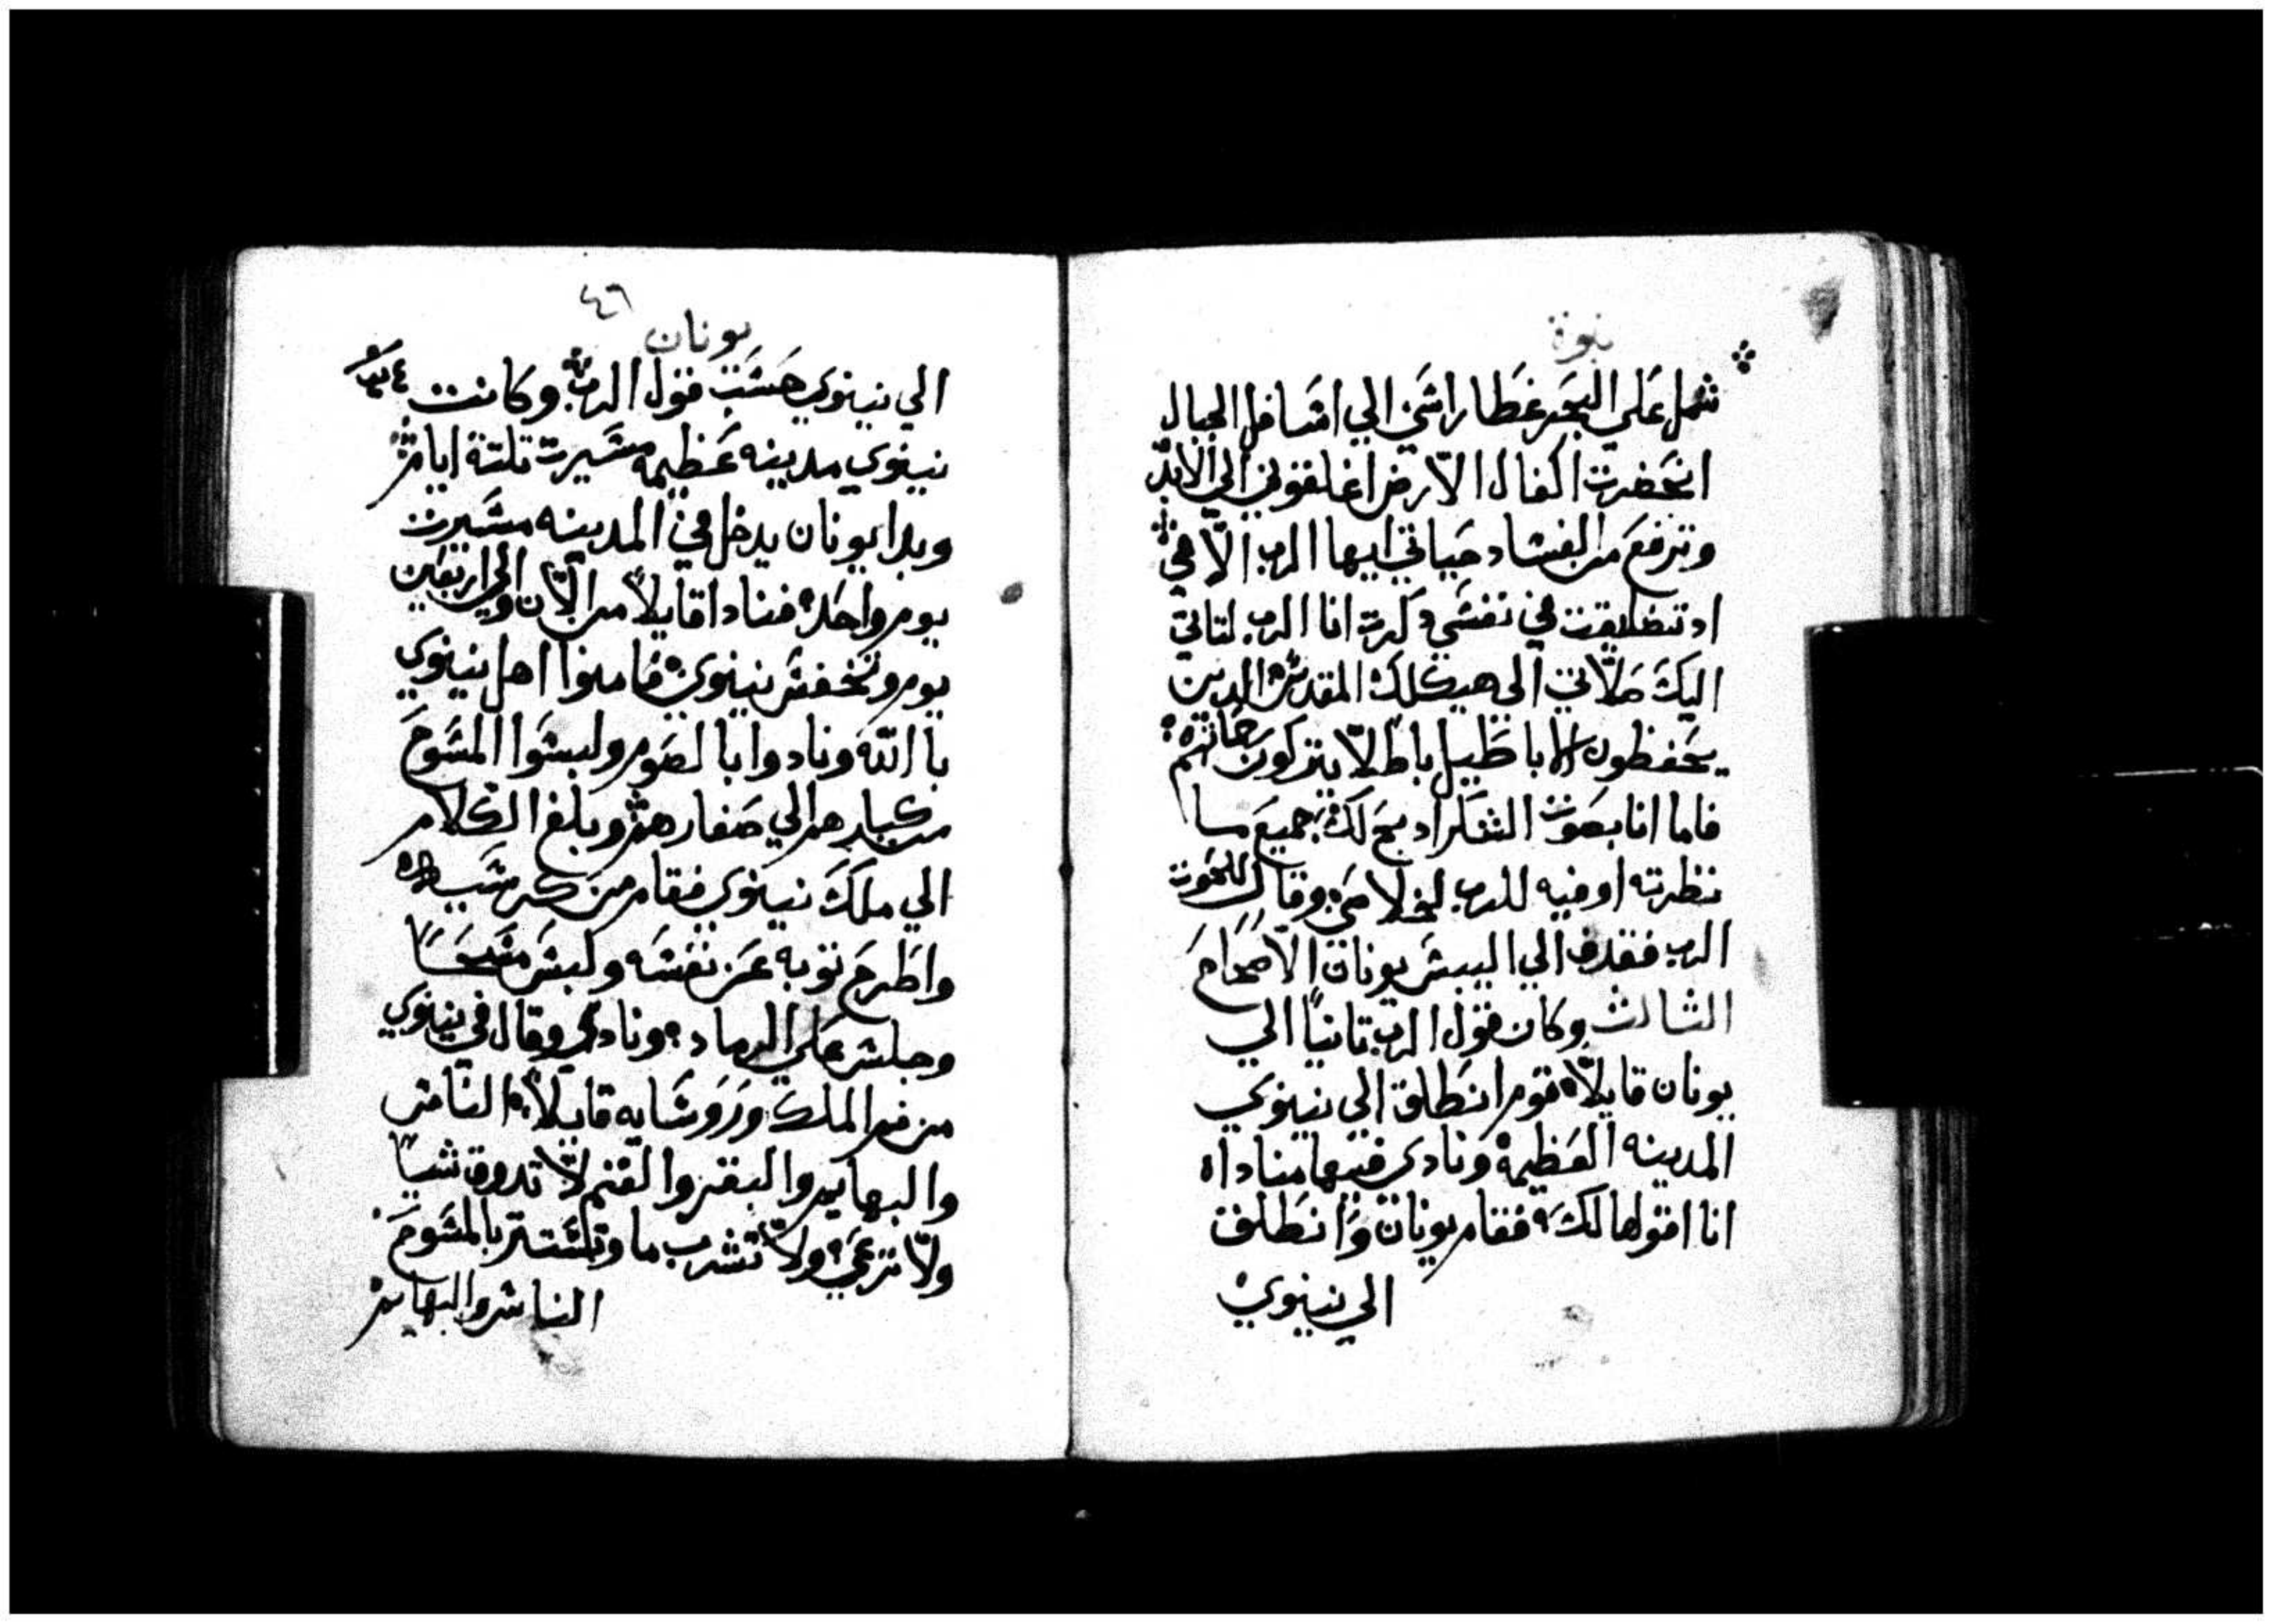 نبوة
شمل علي البحر غطا راسي الي اسافل الجبال
انحضرت اكفال الارض اغلقوني الي الابد
وترفع من الفساد حياتي ايها الرب الاهي
اد تضايقت في نفسي دكرت انا الرب لتاتي
اليك صلاتي الي هيكلك المقدس الدين
يحفظون الاباطيل باطلا يتركون رحمتهم
فاما انا بصوت الشكر ادبح لك جميع ما
نظرته اوفيه للرب لخلاصي وقال للحوت
الرب فقدف الي اليبس يونان الاصحاح
الثالث وكان قول الرب تانيا الي
يونان قايلا قوم انطلق الي نينوي
المدينه العظيمة ونادي فيها مناداه
انا اقولها لك فقام يونان وانطلق
الي نينوي
٤٦
يونان
الي نينوي حسب قول الرب وكانت
نينوي مدينه عظيمه مسيرت تلتة ايام
وبدا يونان يدخل في المدينه مسيرت
يوم واحد فنادا قايلا من الان والي اربعين
يوم وتخفس نينوي فامنوا اهل نينوي
با الله ونادوا با الصوم ولبسوا المسوح
من كبارهم الي صغارهم وبلغ الكلام
الي ملك نينوي فقام من كرسيه
واطرح توبه عن نفسه ولبس مسحا
وجلس علي الرماد ونادي وقال في نينوي
من فم الملك وروسايه قايلا الناس
والبهايم والبقر والغنم لا تدوق شيا
ولا ترعي ولا تشرب ما وتلتستر بالمسوح
الناس والبهايم